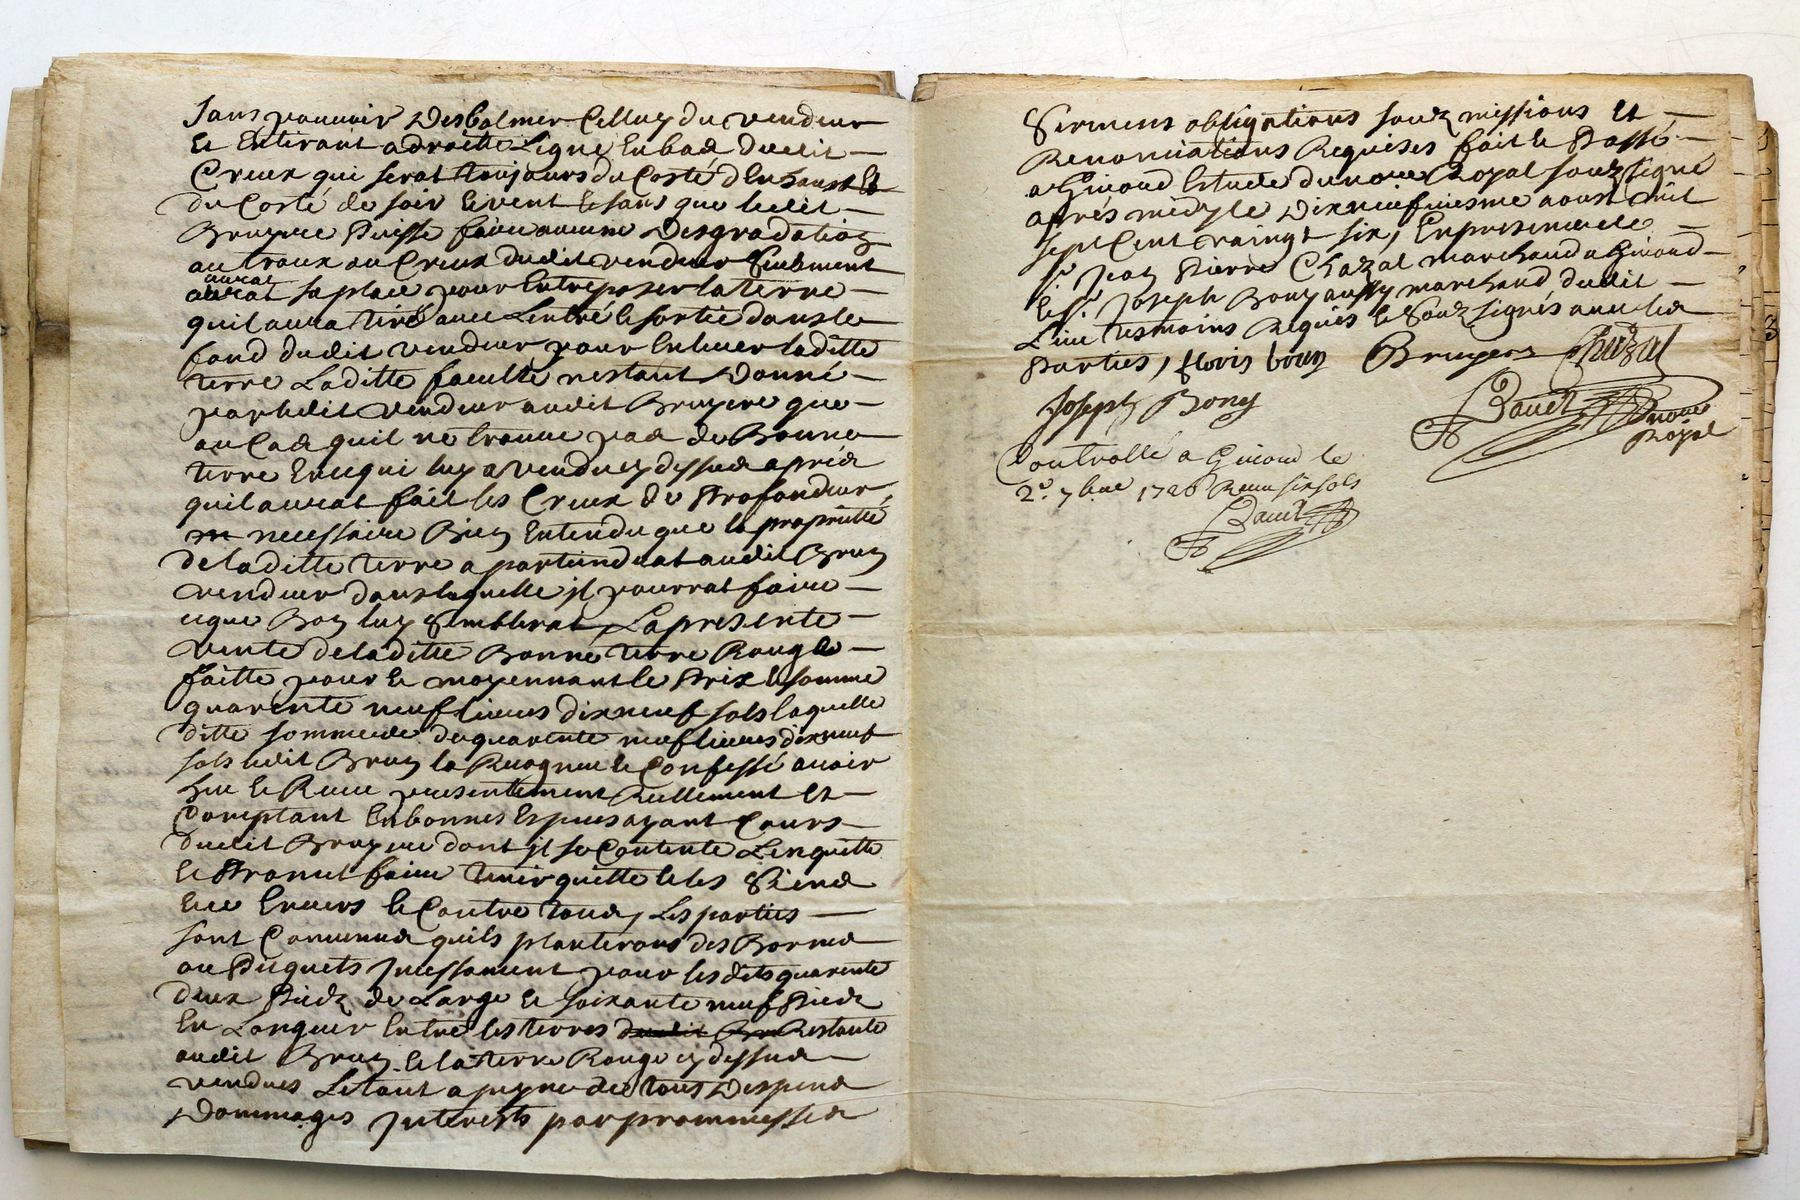 Sans pouvoir Desbalmer Celluy du vendeur
Et Entirant adroitte Ligne En bas dudit
Creux qui serat toujours du Costé d'En haust Et
du Costé de soir Et vent Et sans que ledit
Bruyere Puisse faire aucune Desgradation
au troux ou Creux dudit vendeur seulement
aurat
aurat sa place pour Entreposer la terre
quil aura tiré avec L'entré Et sortie dans le
fond dudit vendeur pour Enlever laditte
terre Laditte faculté nestant Donné
par ledit vendeur audit Bruyere que
au Cas quil ne trouve pas de Bonne
terre En ce qui luy a vendu cy dessus apres
quil aurat fait les Creux de Profondeur
necessaire Bien Entendu que la proprietté
de laditte terre apartiendrat audit Brun
vendeur dans laquelle il pourrat faire
ce que Bon luy Semblerat, La presente
vente de laditte Bonne terre Rouge
faitte pour Et moyennant le Prix Et somme
quarente neuf livres dix neuf sols laquelle
ditte somme de quarente neuf livres dix neuf
sols ledit Brun la Recognue Et Confessé avoir
heu Et Receu presentement Reellement Et
Comptant En bonnes Especes ayant Cours
dudit Bruyere dont il se Contente L'enquitte
Et Promet faire tenir quitte Et les Siens
Envers Et Contre tous, Les parties
sont Convenues quils planterons des Bornes
ou Piquets Incessament pour lesdits quarente
deux Piedz de Large Et soixante neuf Pieds
En Longueur Entre les terres dudit Bru Restante
audit Brun Et la terre Rouge cy dessus
vendues Le tout a peyne de tous Despens
Dommages Interests par prommesses
Sermens obligations souzmissions Et
Renonciations Requises fait Et Passé
a Givord Estude du nore Royal souzsigné
aprés midy le Dixneufviesme aoust mil
sept Cent vaingt six, En presence de
Sr Jean Pierre Chazal marchand a Givord
Et Sr Joseph Bony aussy marchand dudit
Lieu tesmoins Requis Et Souzsignés avec les
Parties, floris brun Bruyere Chazal
Joseph Bony
nore
Royal
Controllé a Givord le
2e 7bre 1726 Receu six sols